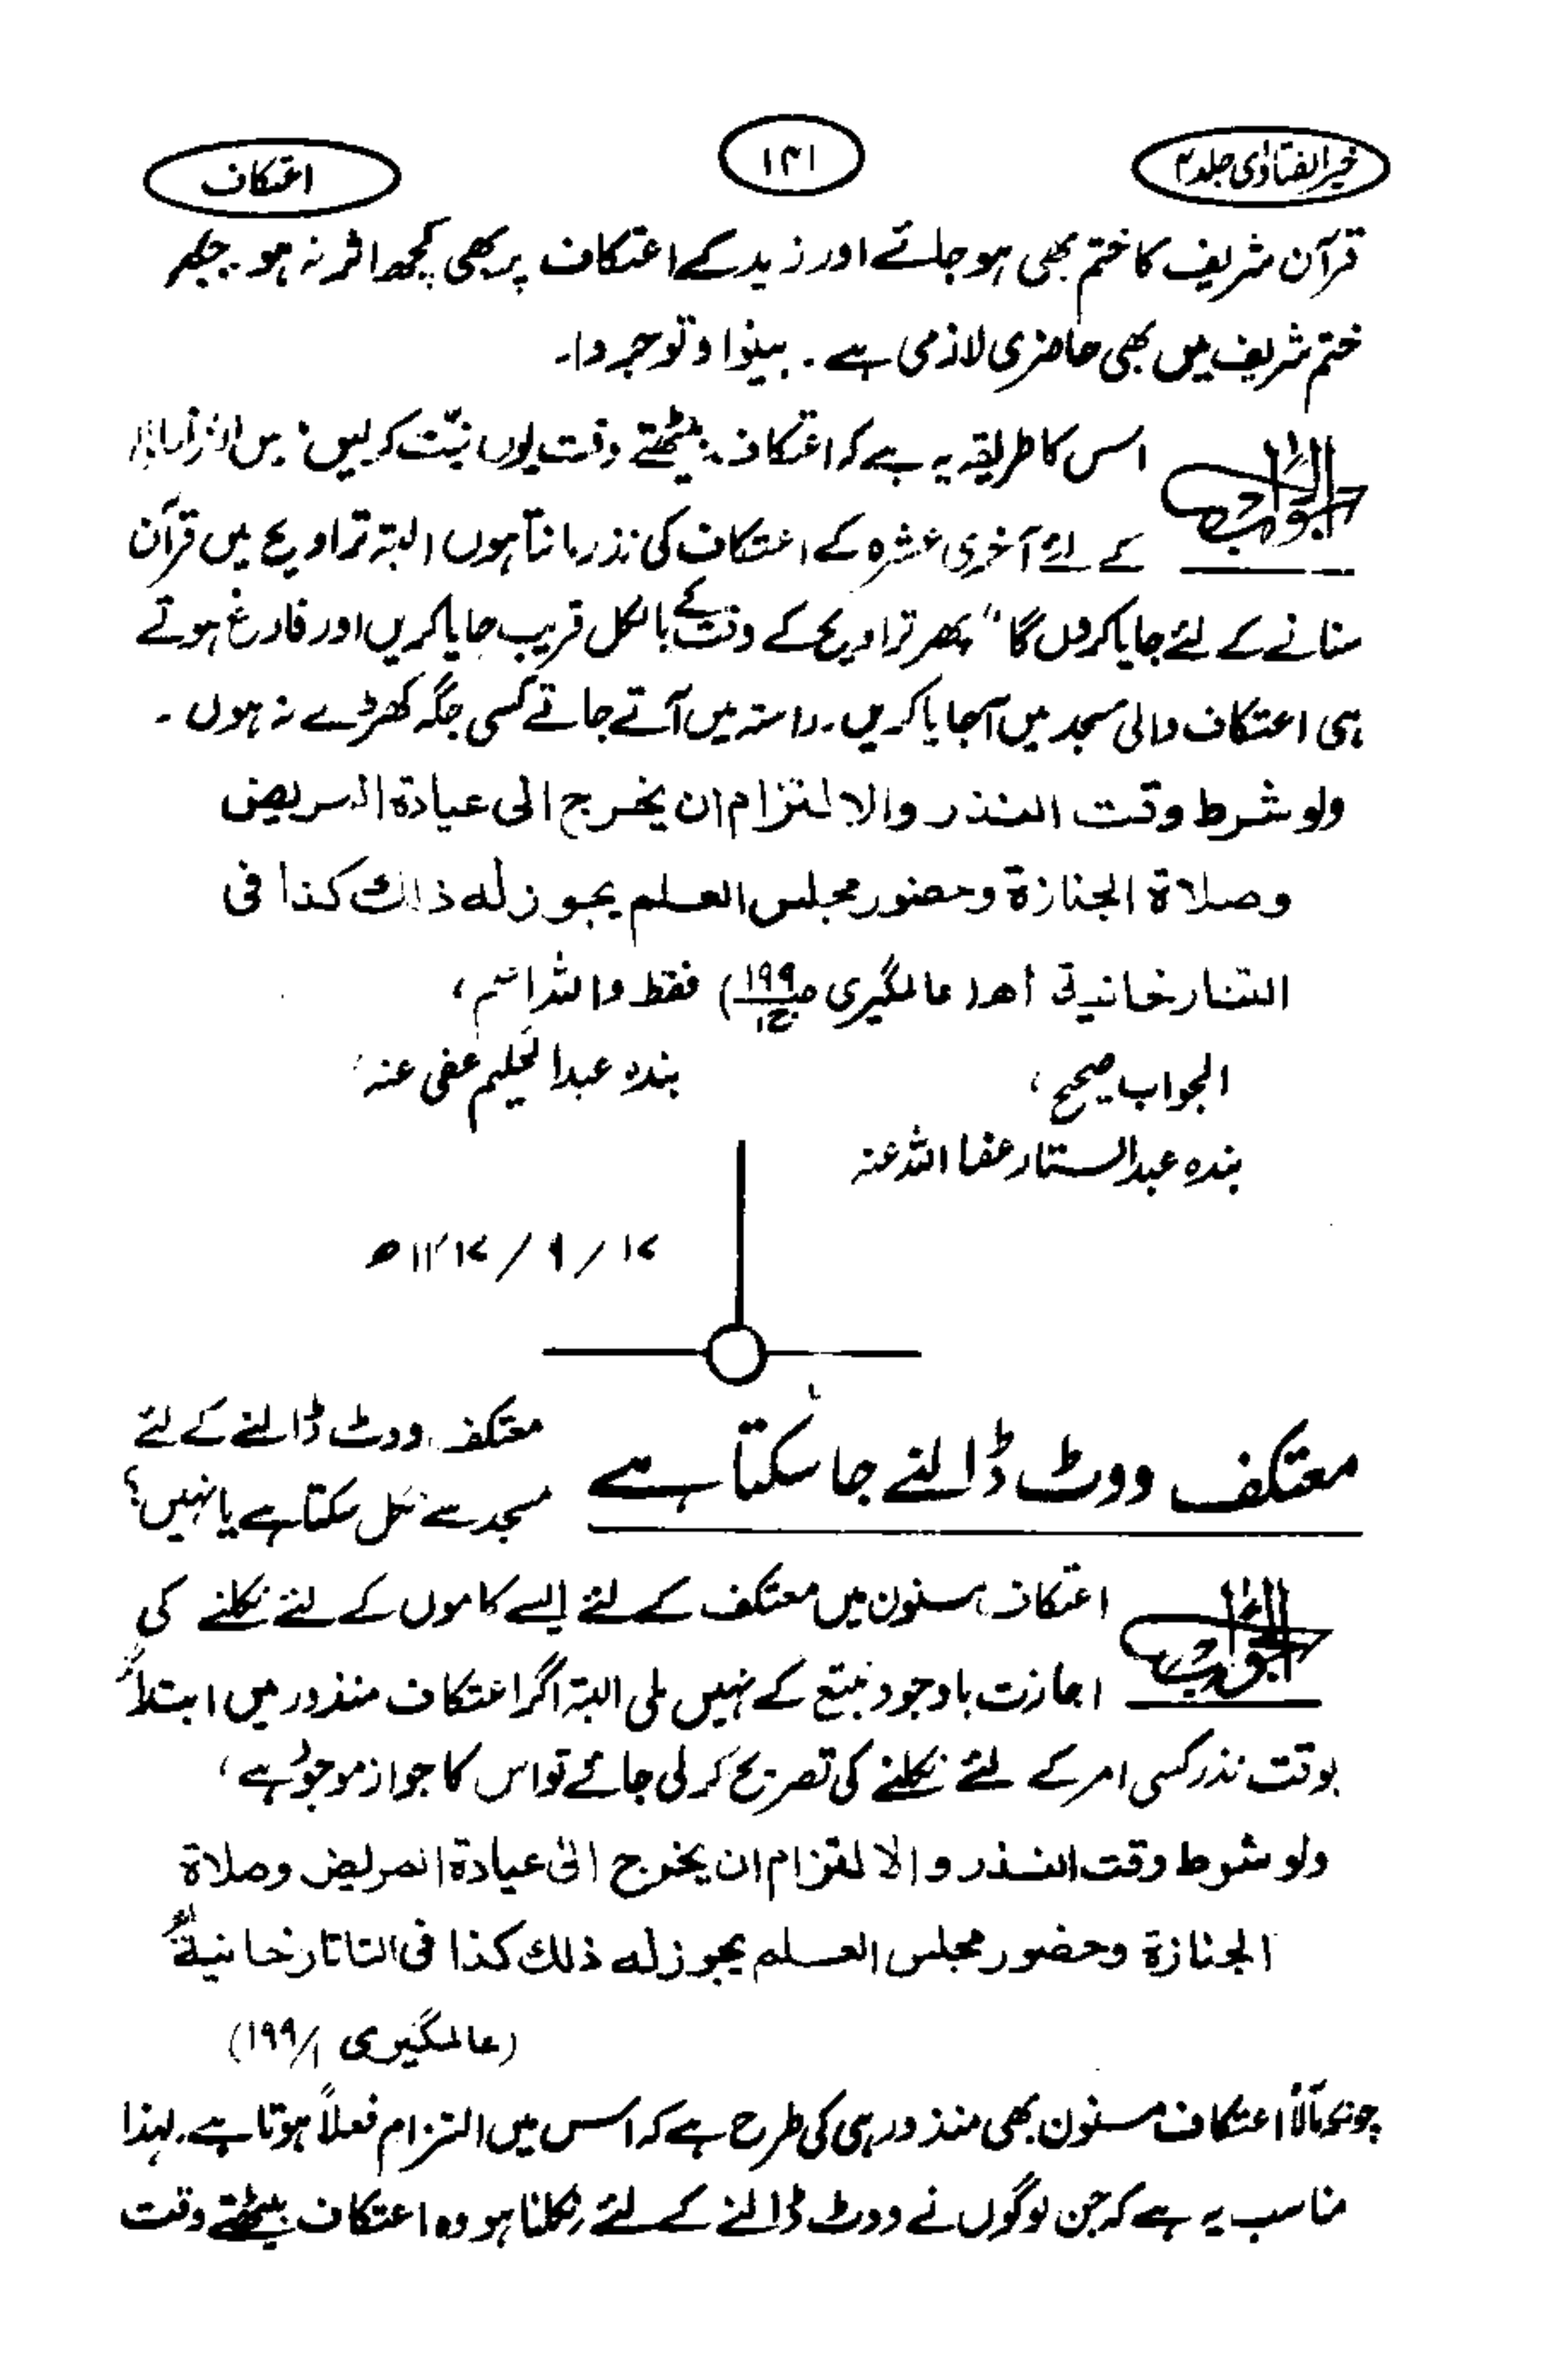 خیرالفتاوٰی جلد ۴
۱۴۱
اعتکاف
قرآن شریف کا ختم بھی ہو جائے اور زید کے اعتکاف پر بھی کچھ اثر نہ ہو۔ جبکہ
ختم شریف میں بھی حاضری لازمی ہے۔ بینوا وتوجروا۔
الجواب
اس کا طریقہ یہ ہے کہ اعتکاف بیٹھتے وقت یوں نیّت کرلیں "میں
کے لئے آخری عشرہ کے اعتکاف کی نذر مانتا ہوں البتہ تراویح میں قرآن
سنانے کے لئے جایا کروں گا" پھر تراویح کے وقت کے بالکل قریب جایا کریں اور فارغ ہوتے
ہی اعتکاف والی مسجد میں آجایا کریں۔ راستہ میں آتے جاتے کسی جگہ کھڑے نہ ہوں۔
ولو شرط وقت النذر والالتزام ان یخرج الی عیادة المریض
وصلاة الجنازة وحضور مجلس العلم یجوز له ذالك كذا فی
التتارخانیة اھ (عالمگیری ص۱۹۹ ج۱) فقط واللہ اعلم،
بندہ عبدالحلیم عفی عنہ
الجواب صحیح،
بندہ عبدالستار عفا اللہ عنہ
معتکف ووٹ ڈالنے جا سکتا ہے
معتکف ووٹ ڈالنے کے لئے
مسجد سے نکل سکتا ہے یا نہیں؟
الجواب
اعتکاف مسنون میں معتکف کے لئے ایسے کاموں کے لئے نکلنے کی
اجازت باوجود تتبع کے نہیں ملی البتہ اگر اعتکاف منذور میں ابتداءً
بوقت نذر کسی امر کے لئے نکلنے کی تصریح کرلی جائے تو اس کا جواز موجود ہے،
ولو شرط وقت النذر والالتزام ان یخرج الی عیادة المریض وصلاة
الجنازة وحضور مجلس العلم یجوز له ذلك كذا فی التاتارخانیة اھ
(عالمگیری ۱/۱۹۹)
چونکہ مآلاً اعتکاف مسنون بھی منذور ہی کی طرح ہے کہ اس میں التزام فعلاً ہوتا ہے۔ لہذا
مناسب یہ ہے کہ جن لوگوں نے ووٹ ڈالنے کے لئے نکلنا ہو وہ اعتکاف بیٹھتے وقت